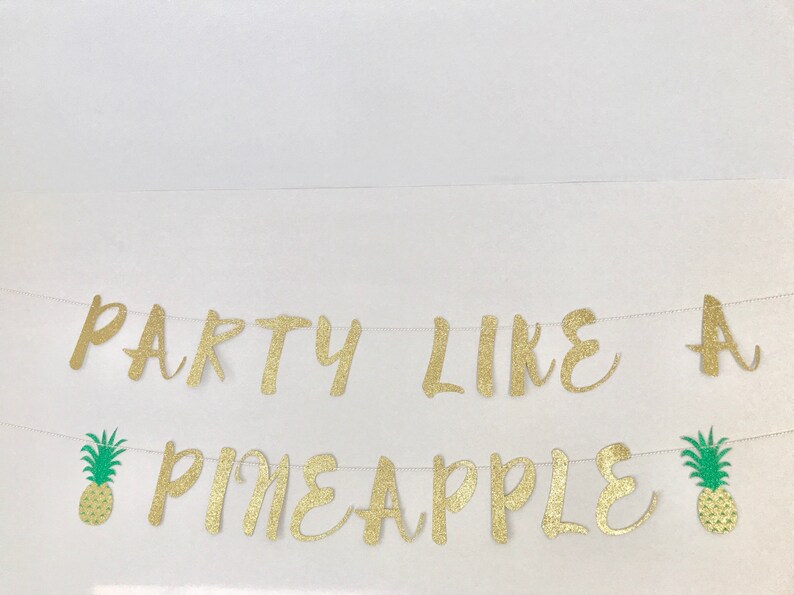 PARTY LIKE A
PINEAPPLE